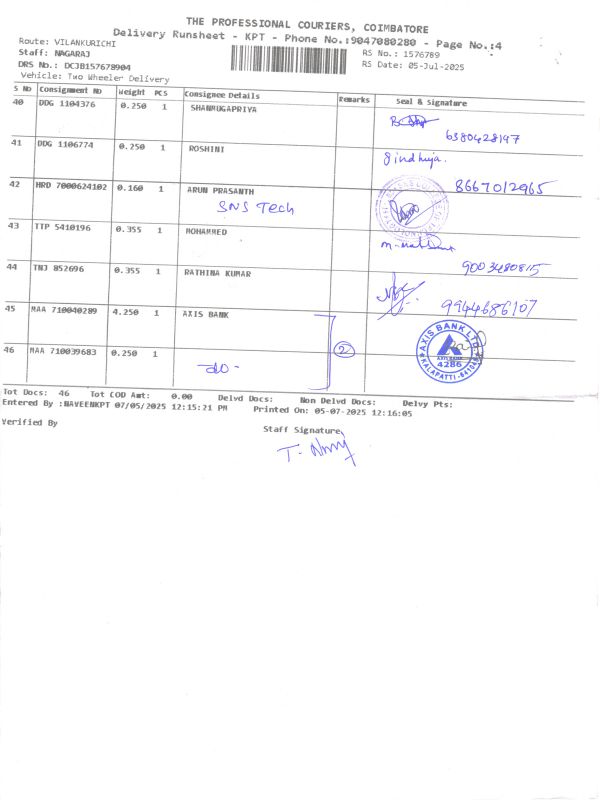 THE PROFESSIONAL COURIERS, COIMBATORE
Delivery Runsheet - KPT - Phone No.:9047080280 - Page No.:4
Route: VILANKURICHI
RS No.: 1576789
Staff: NAGARAJ
RS Date: 05-Jul-2025
DRS No.: DCJB157678904
Vehicle: Two Wheeler Delivery
S No Consignment No Weight PCS Consignee Details Remarks Seal & Signature
40 DDG 1104376 0.250 1 SHANMUGAPRIYA
6380428197
41 DDG 1106774 0.250 1 ROSHINI Sindhuja.
8667012965
42 HRD 7000624102 0.160 1 ARUN PRASANTH
SNS Tech
43 TTP 5410196 0.355 1 MOHAMMED
9003480815
44 TNJ 852696 0.355 1 RATHINA KUMAR
9944686107
45 MAA 710040289 4.250 1 AXIS BANK
2
AXIS BANK LTD
AXIS BANK
4286
KALAPATTI
46 MAA 710039683 0.250 1
-do-
Tot Docs: 46 Tot COD Amt: 0.00 Delvd Docs: Non Delvd Docs: Delvy Pts:
Entered By :NAVEENKPT 07/05/2025 12:15:21 PM Printed On: 05-07-2025 12:16:05
Verified By
Staff Signature